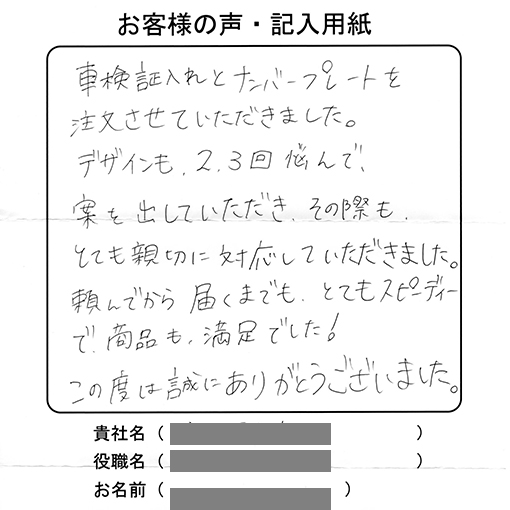 お客様の声・記入用紙
車検証入れとナンバープレートを
注文させていただきました。
デザインも、2、3回悩んで、
案を出していただき、その際も、
とても親切に対応していただきました。
頼んでから届くまでも、とてもスピーディー
で、商品も、満足でした!
この度は誠にありがとうございました。
貴社名（ ）
役職名（ ）
お名前（ ）